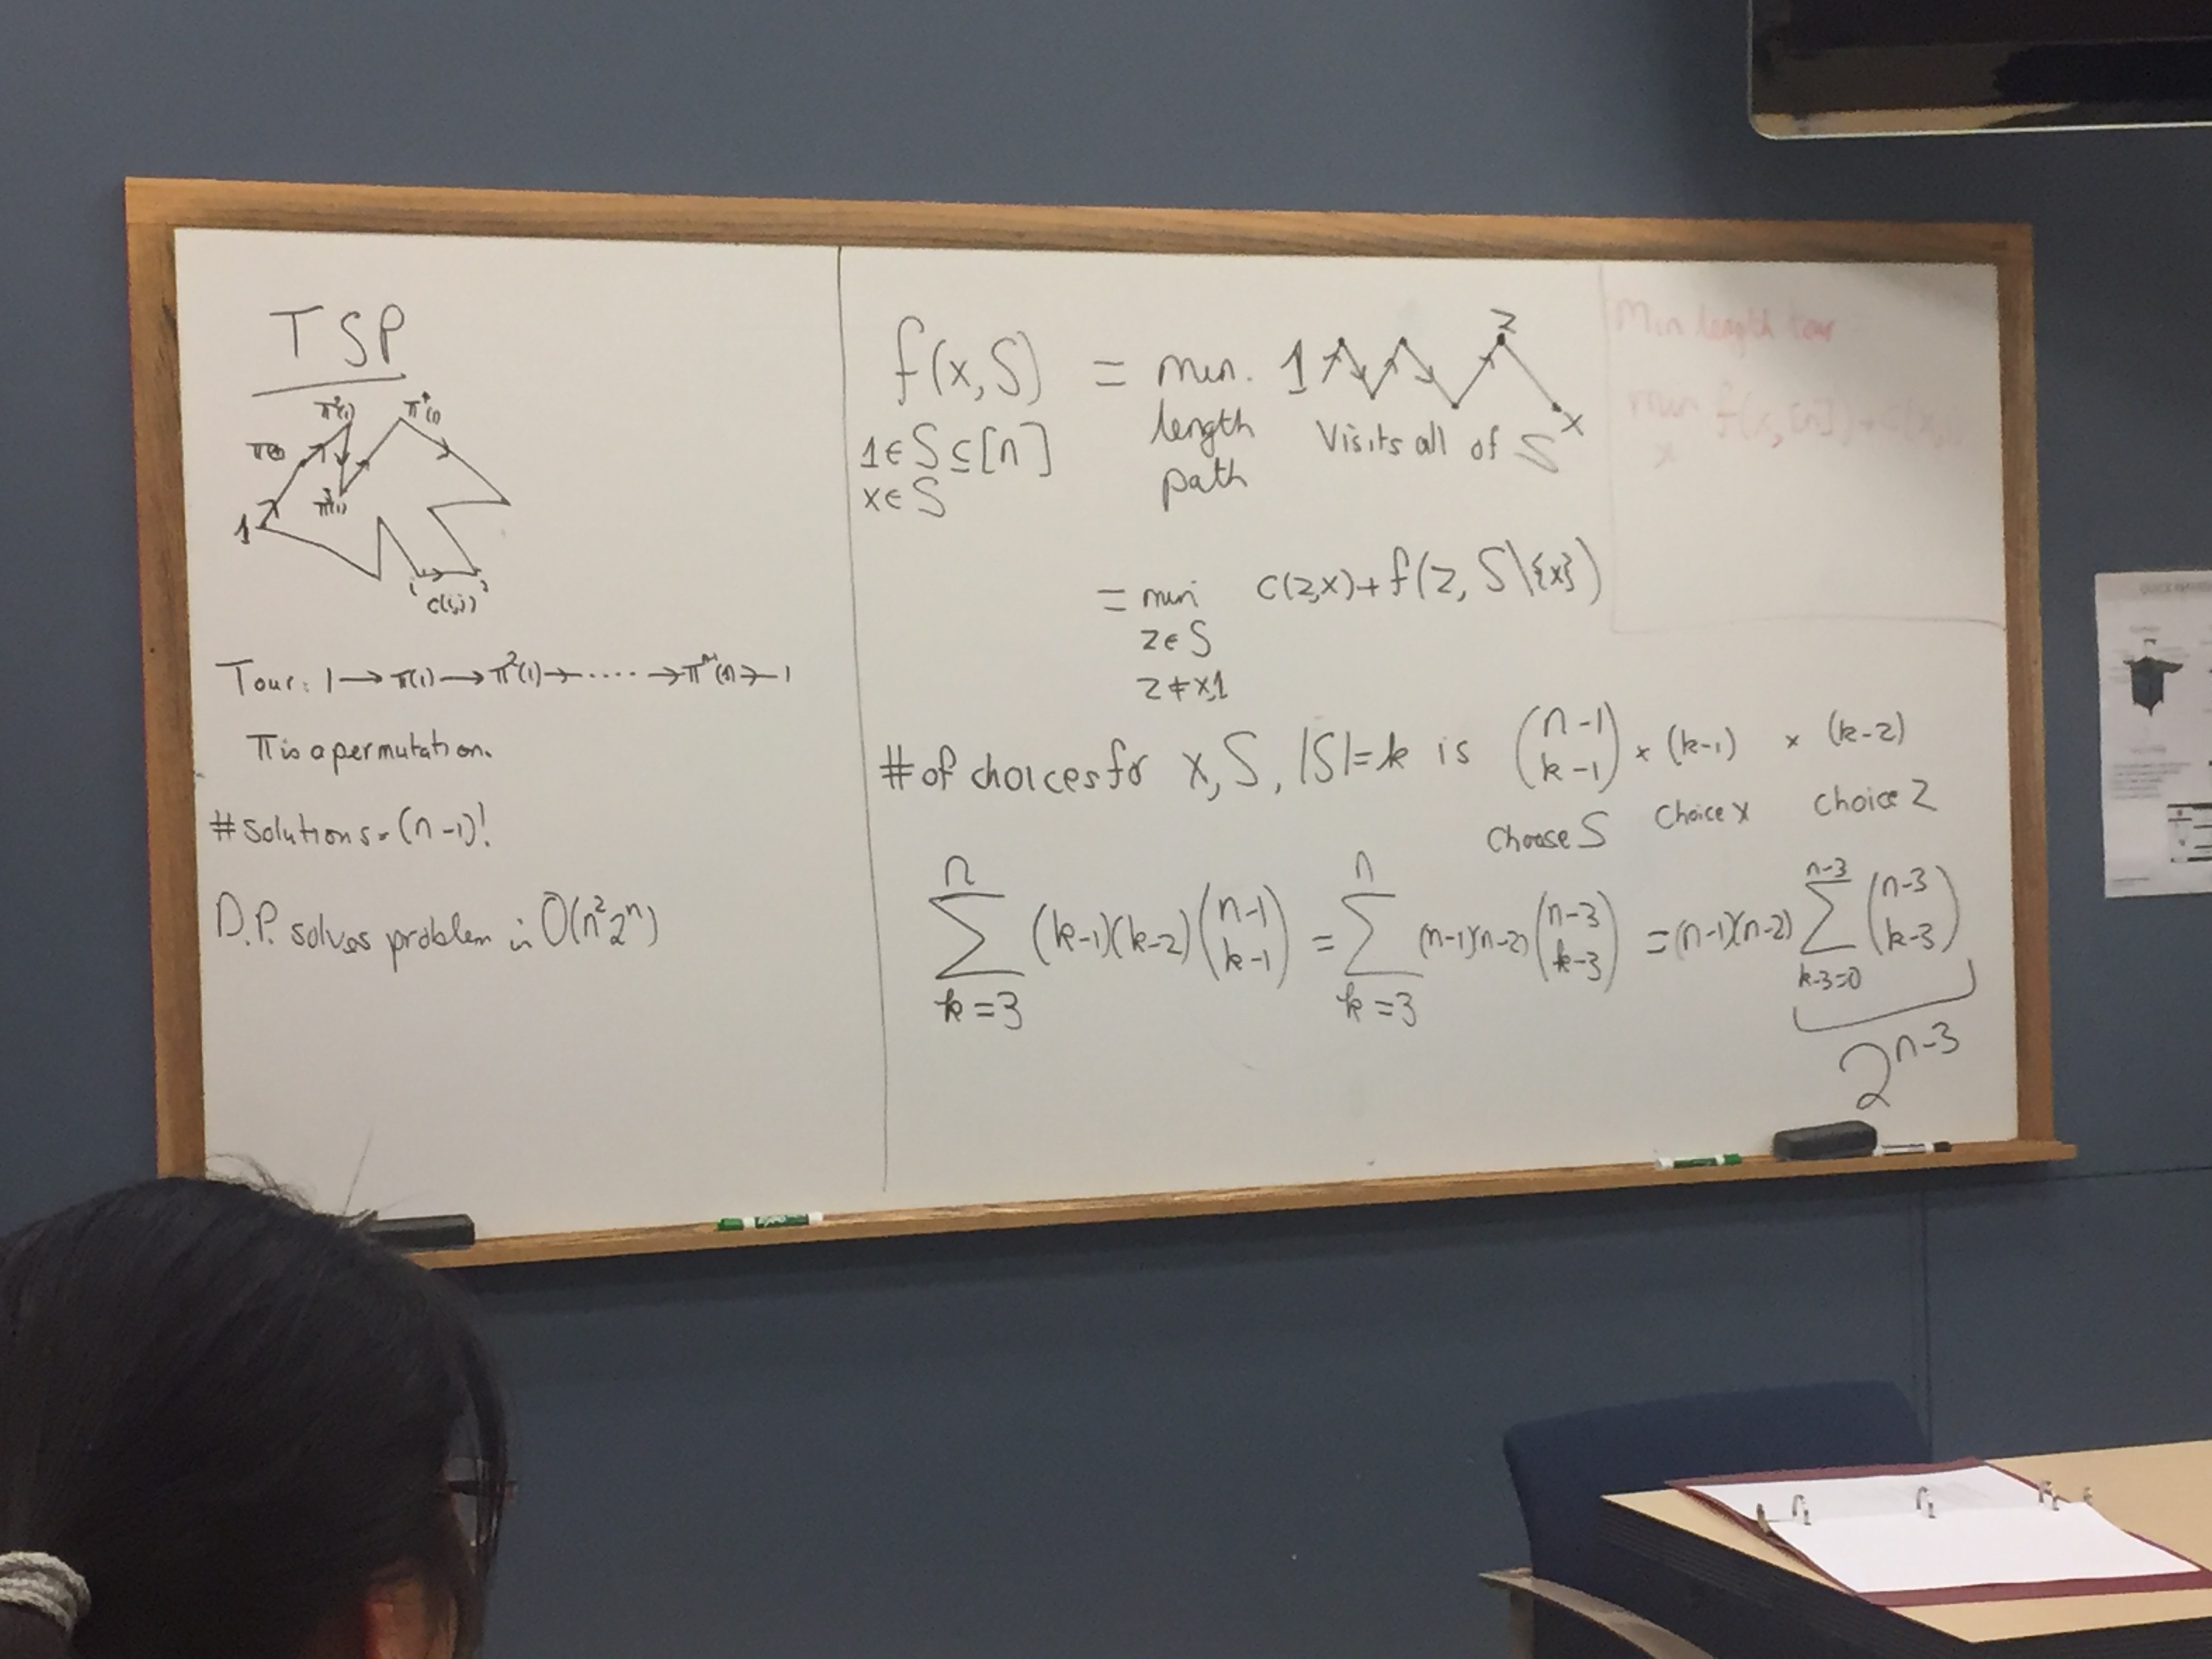 TSP
π²(1) π⁴(1)
π³(1)
1
i j
c(i,j)
Tour: 1 → π(1) → π²(1) → ..... → πⁿ⁻¹(1) → 1
π is a permutation.
# solutions = (n-1)!
D.P. solves problem in O(n²2ⁿ)
f(x,S) = min. length path 1 z x
1∈S⊆[n] Visits all of S
x∈S
= min c(z,x) + f(z, S\{x})
z∈S
z≠x,1
# of choices for x, S, |S|=k is (n-1 k-1) × (k-1) × (k-2)
Choose S Choice x Choice z
n ∑ k=3 (k-1)(k-2) (n-1 k-1) = n ∑ k=3 (n-1)(n-2) (n-3 k-3) = (n-1)(n-2) n-3 ∑ k-3=0 (n-3 k-3)
2ⁿ⁻³
Min length tour
min f(x,[n]) +
x